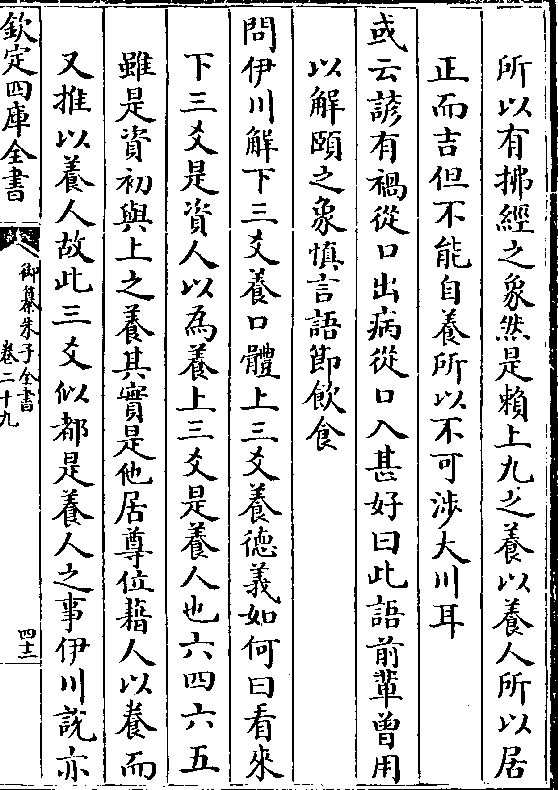 所以有拂經之象然是賴上九之養以養人所以居
正而吉但不能自養所以不可涉大川耳
或云諺有禍從口出病從口入甚好曰此語前輩曽用
以解頤之象慎言語節飲食
問伊川解下三爻養口體上三爻養德義如何曰看來
下三爻是資人以為養上三爻是養人也六四六五
雖是資初與上之養其實是他居尊位藉人以養而
又推以養人故此三爻似都是養人之事伊川説亦
欽定四庫全書
御纂朱子全書
卷二十九
四十三